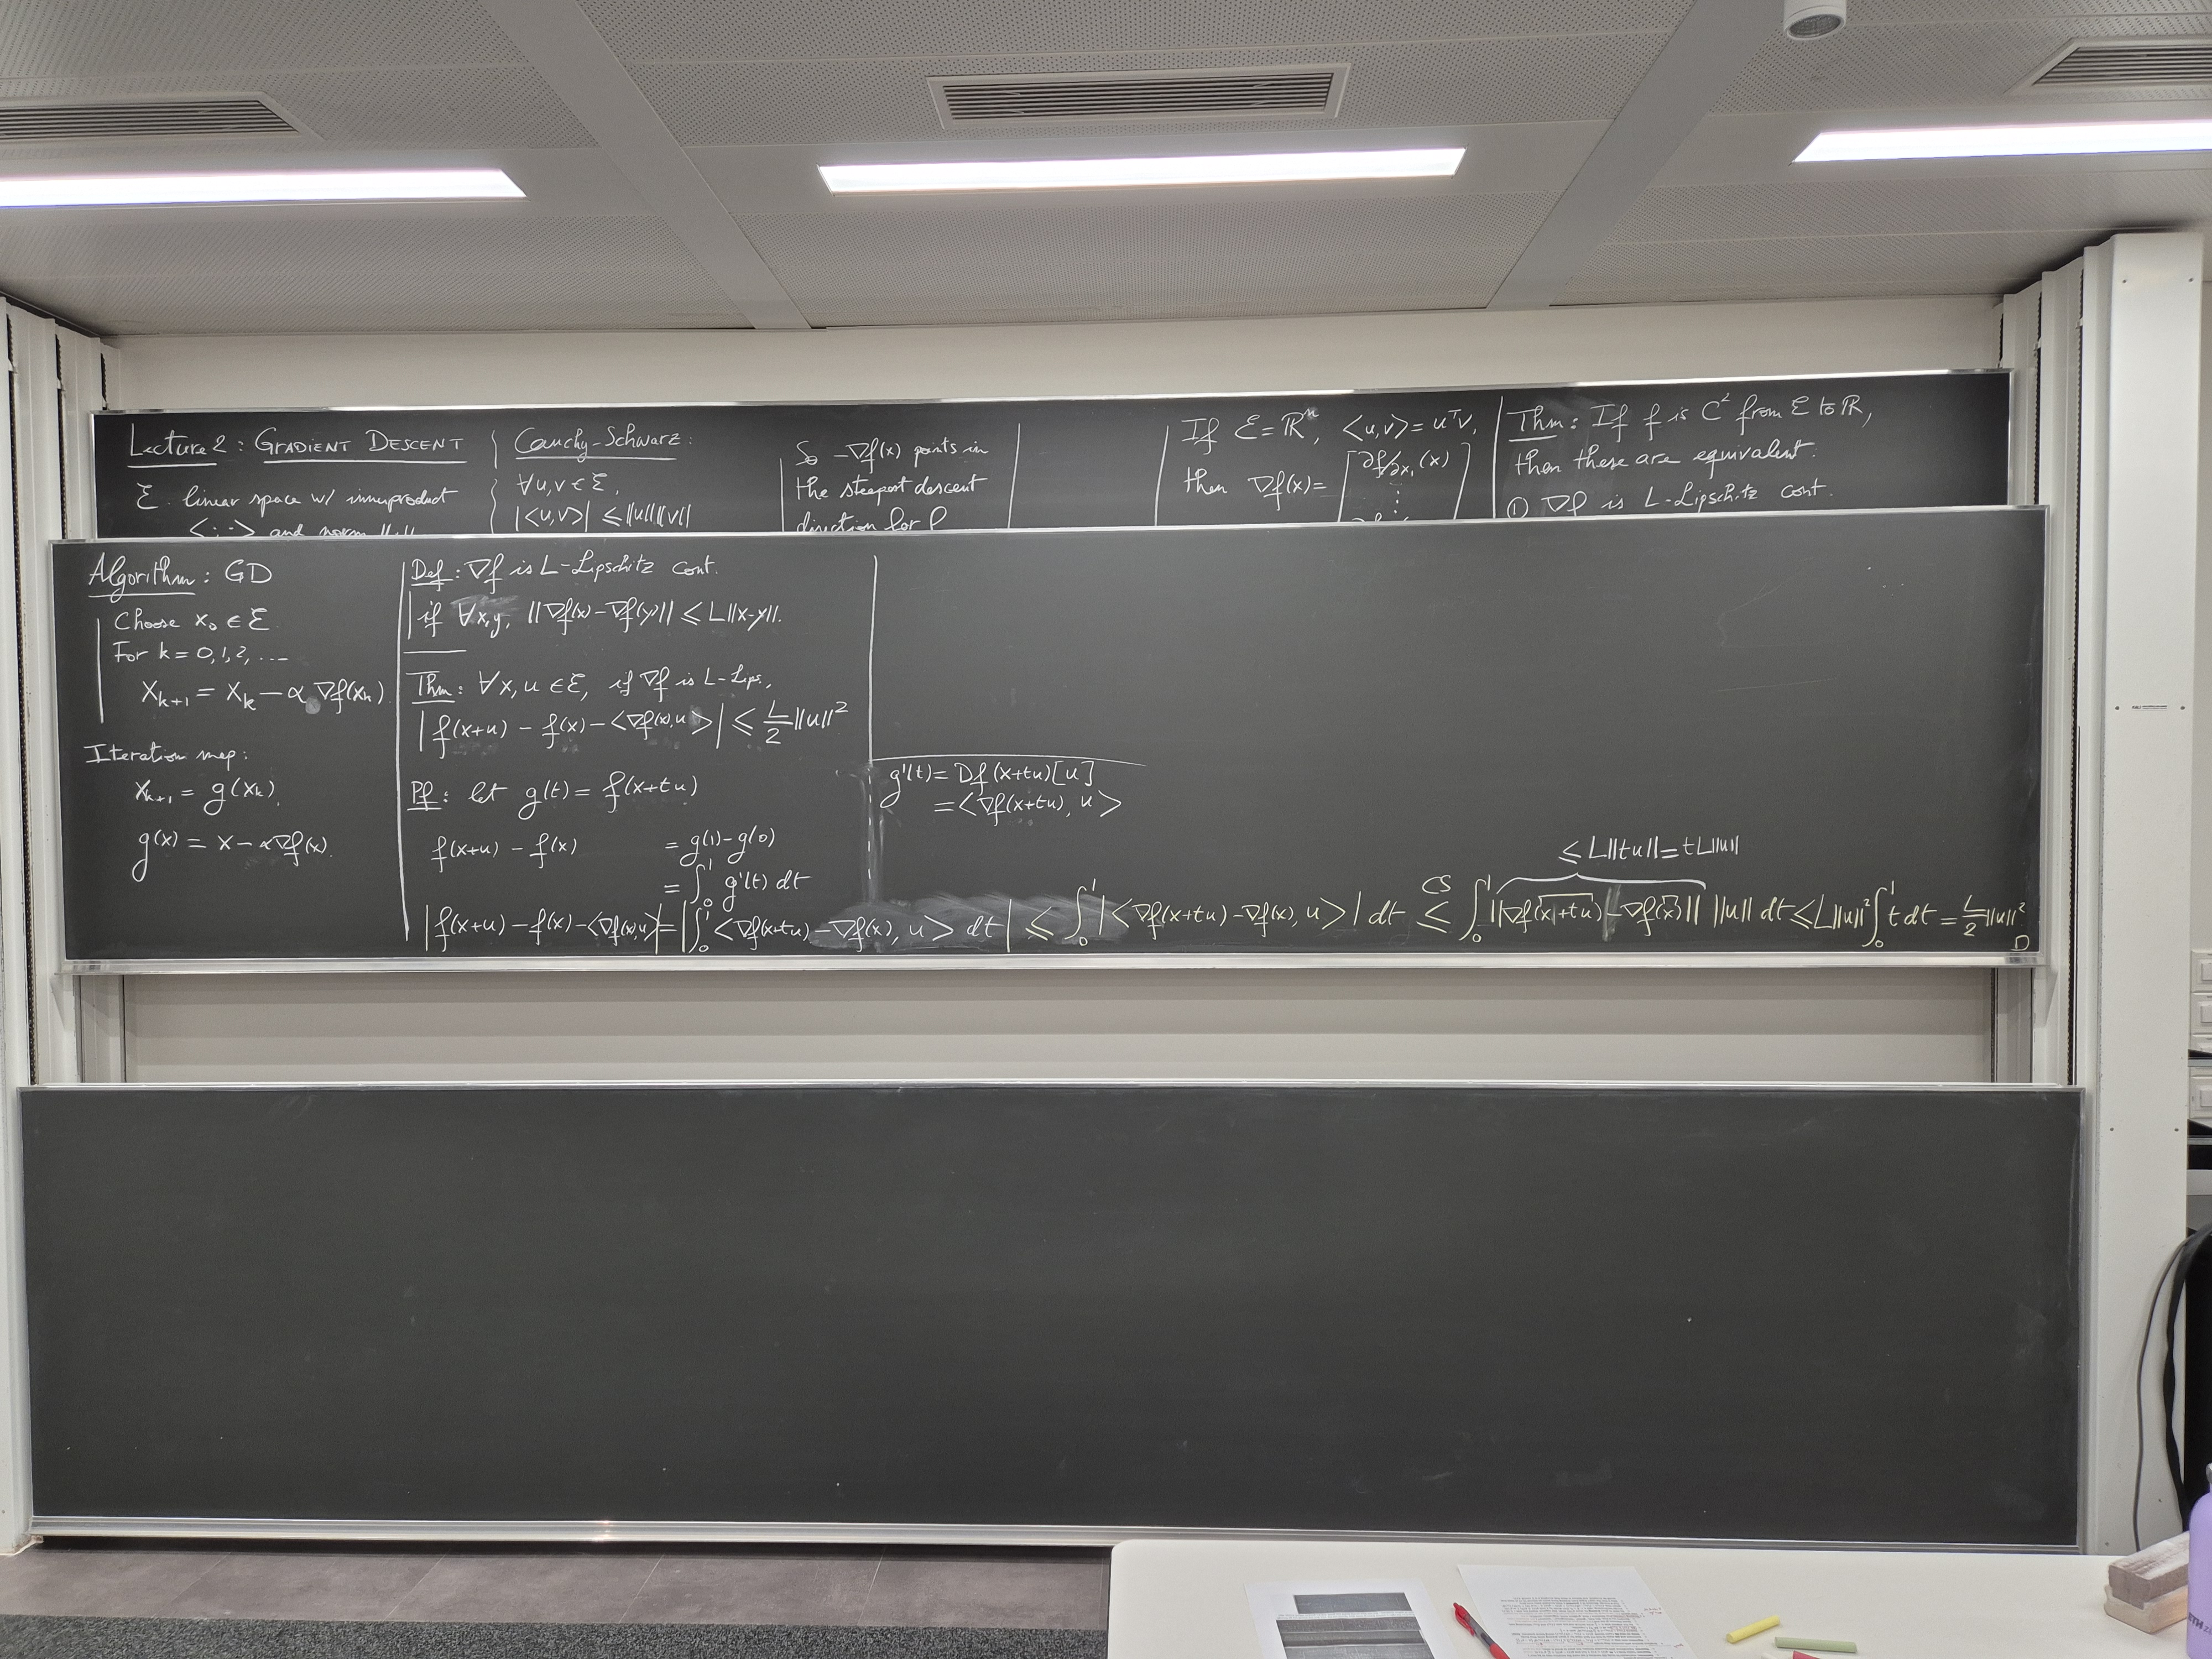 Lecture 2 : GRADIENT DESCENT
ℰ linear space w/ inner product
<·,·> and norm ||·||
Cauchy-Schwarz:
∀u,v ∈ ℰ,
|<u,v>| ≤ ||u|| ||v||
So -∇f(x) points in
the steepest descent
direction for f
If ℰ = ℝⁿ, <u,v> = uᵀv,
then ∇f(x) = [∂f/∂x₁(x)
⋮
Thm: If f is C² from ℰ to ℝ,
then these are equivalent.
① ∇f is L-Lipschitz cont.
Algorithm: GD
Choose x₀ ∈ ℰ
For k = 0,1,2, ...
x_{k+1} = x_k - α ∇f(x_k)
Iteration map:
x_{k+1} = g(x_k)
g(x) = x - α∇f(x).
Def: ∇f is L-Lipschitz cont.
if ∀x,y, ||∇f(x) - ∇f(y)|| ≤ L||x-y||.
Thm: ∀x,u ∈ ℰ, if ∇f is L-Lips.,
|f(x+u) - f(x) - <∇f(x),u>| ≤ L/2 ||u||²
Pf: let g(t) = f(x+tu)
f(x+u) - f(x) = g(1) - g(0)
= ∫₀¹ g'(t) dt
g'(t) = Df(x+tu)[u]
= <∇f(x+tu), u>
≤ L||tu|| = tL||u||
|f(x+u) - f(x) - <∇f(x),u>| = |∫₀¹ <∇f(x+tu) - ∇f(x), u> dt| ≤ ∫₀¹ |<∇f(x+tu) - ∇f(x), u>| dt ≤^{CS} ∫₀¹ ||∇f(x+tu) - ∇f(x)|| ||u|| dt ≤ L||u||² ∫₀¹ t dt = L/2 ||u||²
□